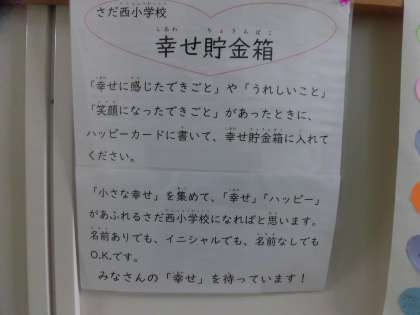 さだ西小学校
幸せ貯金箱
「幸せに感じたできごと」や「うれしいこと」
「笑顔になったできごと」があったときに、
ハッピーカードに書いて、幸せ貯金箱に入れて
ください。
「小さな幸せ」を集めて、「幸せ」「ハッピー」
があふれるさだ西小学校になればと思います。
名前ありでも、イニシャルでも、名前なしでも
O.K.です。
みなさんの「幸せ」を待っています！